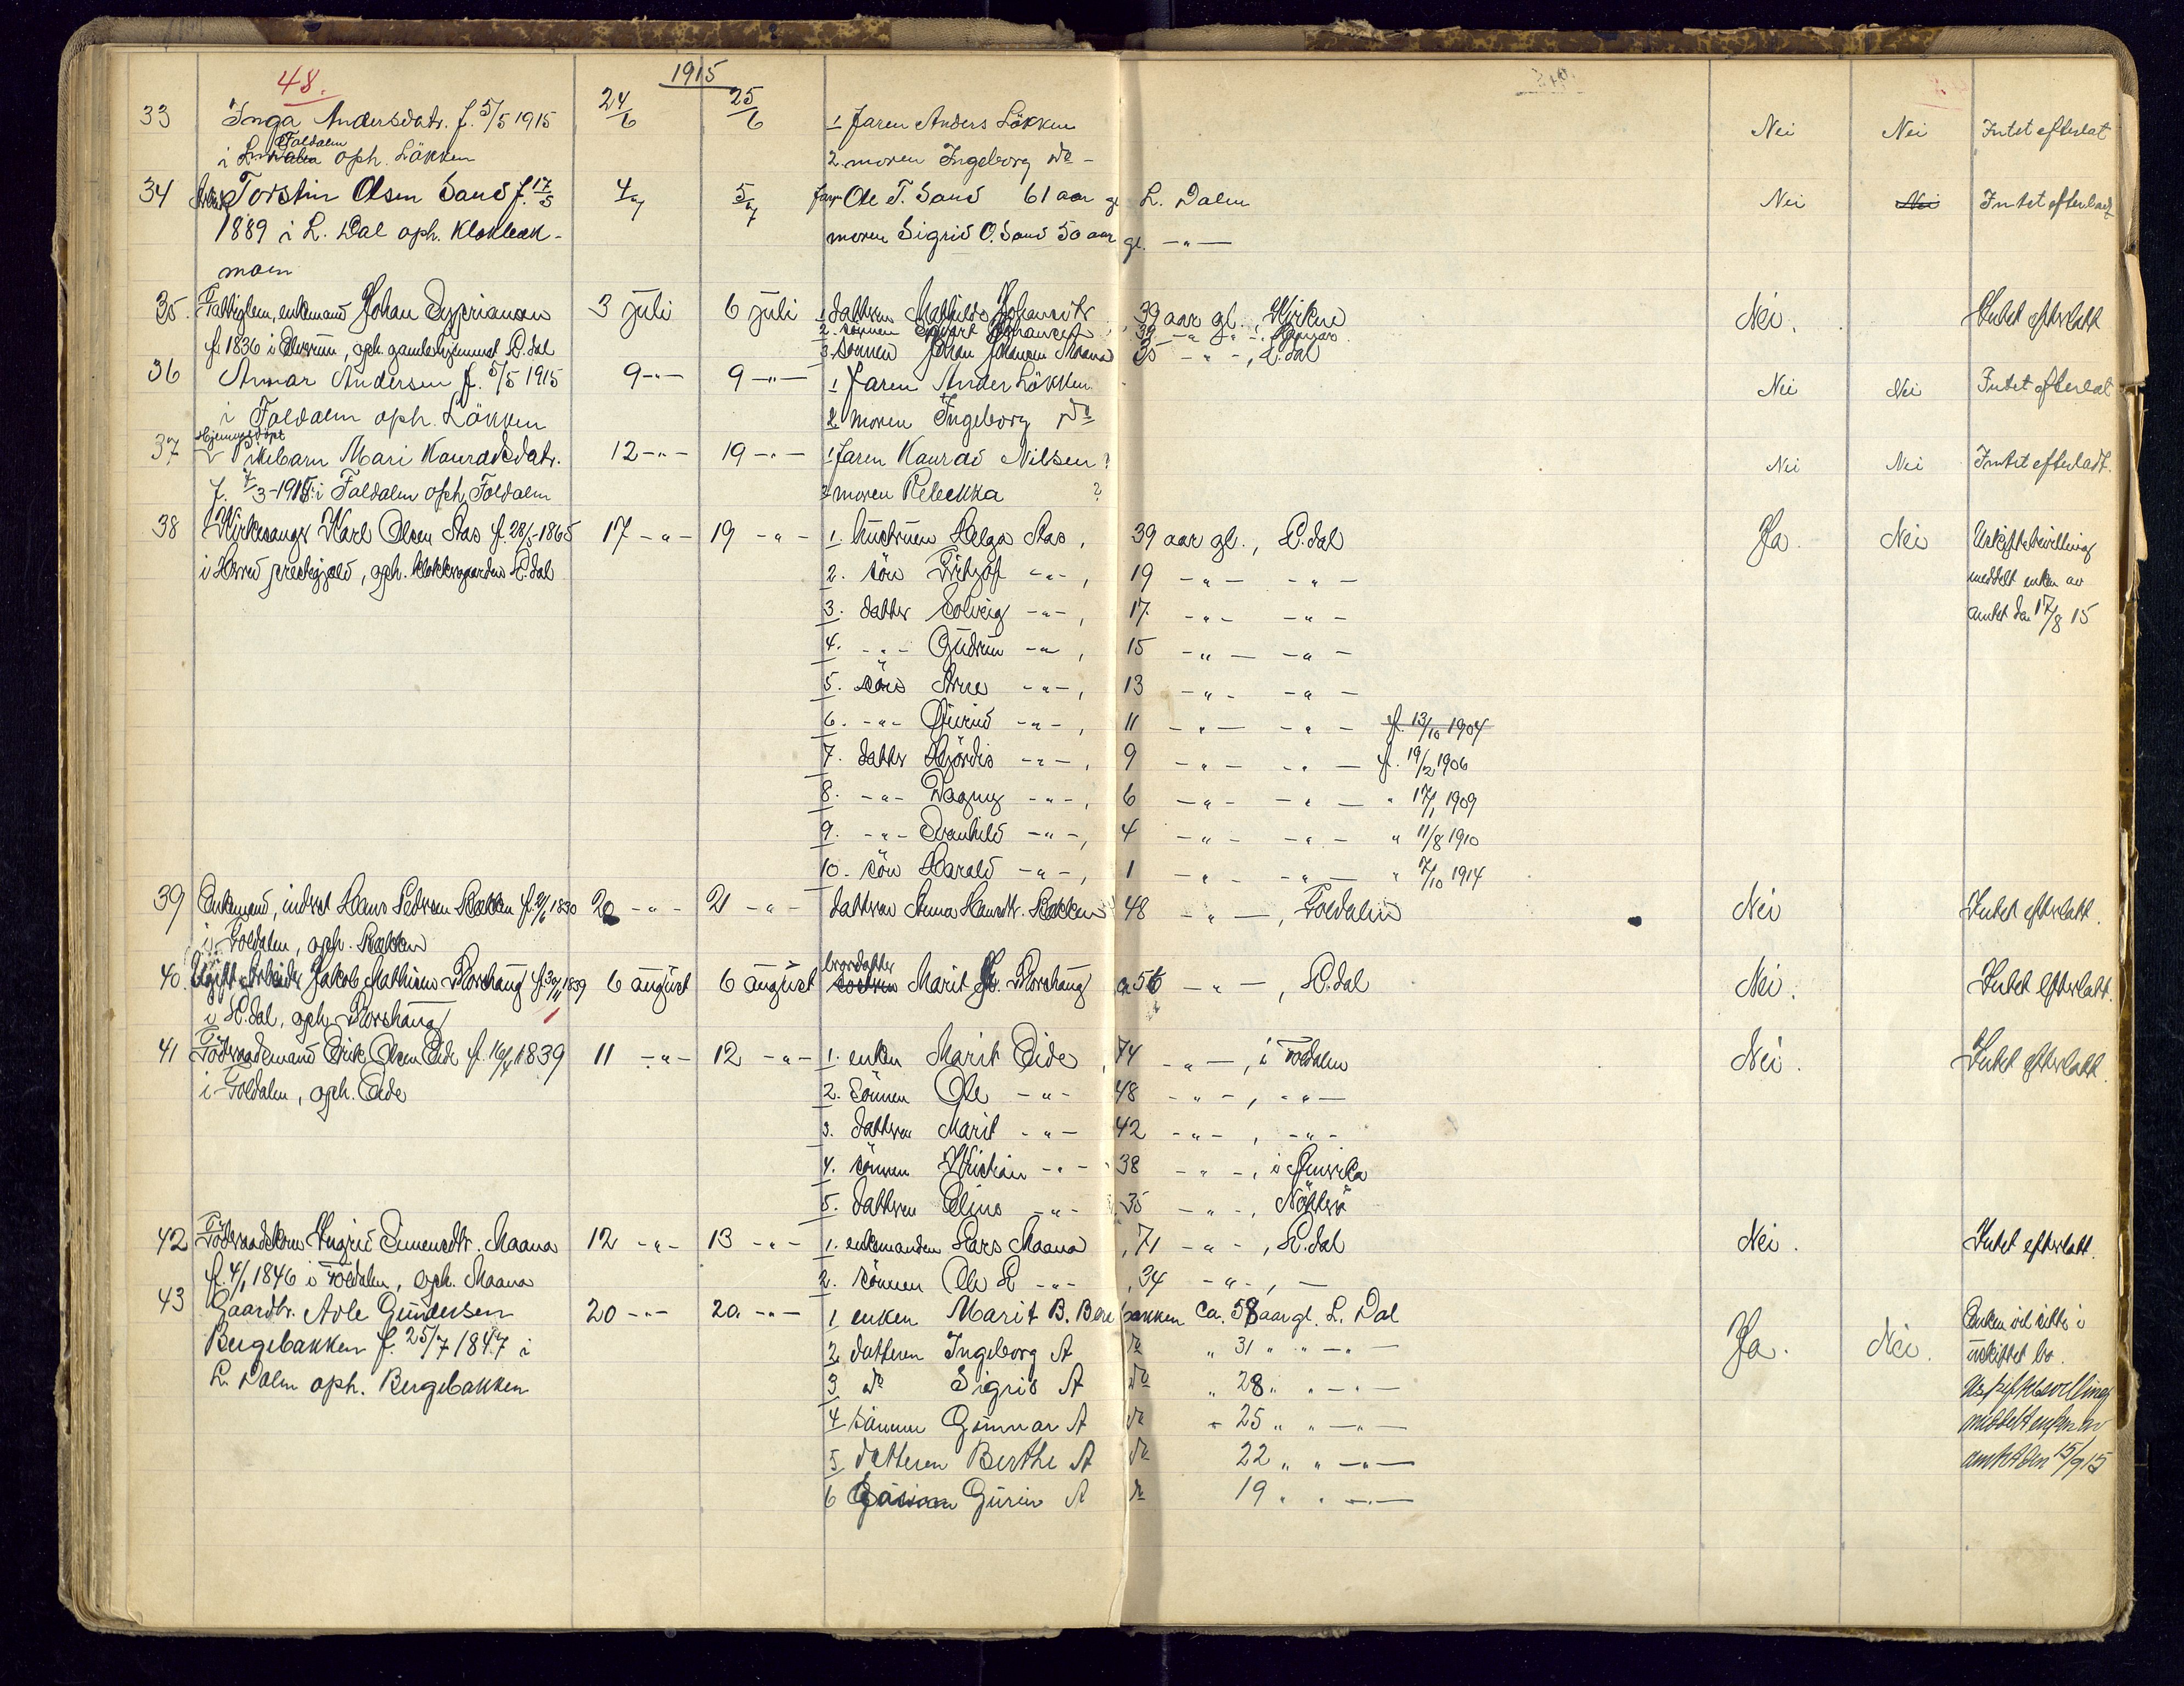 48. 1915
33 Inga Andersdatr. f. 5/5 1915 24/6 25/6 1 faren Anders Løkken Nei Nei Intet efterlat
i Foldalen oph. Løkken 2. moren Ingeborg do -
34 Torstein Olsen Sand f. 17/5 4/7 5/7 faren Ole T. Sand 61 aar gl L. Dalen Nei Nei Intet efterladt
1889 i L. Dal oph. Klokkerk- moren Sigrid O. Sand 50 aar gl. -"-
moen
35. Fattiglem, enkemand Johan Cyprianson 3 juli 6 juli 1 datteren Mathilde Johansdtr, 39 aar gl., Kirkene Nei. Intet efterlatt
2. sønnen Johansen, 38 -"-
f. 1836 i Elverum, oph. gamlehjemmet L. dal 3. sønnen Johan Johansen Moana 35 -"-, L. dal
36 Annar Andersen f. 5/5 1915 9 -"- 9 -"- 1 faren Ander Løkken Nei Nei Intet efterlat
i Foldalen oph. Løkken 2 moren Ingeborg do
Hjemmedøpt
37 Pikebarn Mari Konradsdatr. 12 -"- 19 -"- 1 faren Konrad Nilsen ? Nei Nei Intet efterladt.
f. 7/3-1915 i Foldalen oph. Foldalen 2 moren Rebekka ?
38 Kirkesanger Karl Olsen Aas f. 28/5-1865 17 -"- 19 -"- 1. hustruen Helga Aas, 39 aar gl., L. dal Ja. Nei Uskiftebevilling
i Herred prestegjeld, oph. klokkergaarden L. dal 2. søn Fritjof -"-, 19 -"- -"- meddelt enken av
3. datter Solveig -"-, 17 -"- -"- amtet den 17/8 15
4. -"- Gudrun -"-, 15 -"- -"-
5. søn Arne -"-, 13 -"- -"-
6. -"- Øivind -"-, 11 -"- -"- f. 13/10 1904
7. datter Hjørdis -"-, 9 -"- -"- f. 19/2 1906
8. -"- Dagny -"-, 6 -"- -"- " 17/1 1909
9. -"- Svanhild -"-, 4 -"- -"- " 11/8 1910
10. søn Harald -"-, 1 -"- -"- " 7/10 1914
39 Enkemand, inderst Hans Pedersen Bakken f. 2/6 1830 20 -"- 21 -"- datteren Anna Hansdtr. Bakken 48 -"-, Foldalen Nei Intet efterlatt.
i Foldalen, oph. Bakken
40. Ugift Arbeider Jakob Mathisen Plorhaug f. 30/11 1839 6 august 6 august brordatter Marit Plorhaug ca 56 -"-, L. dal Nei. Intet efterlatt.
i L. dal, oph. Plorshaug
41 Føderaadsmand Erik Olsen Eide f. 16/4 1839 11 -"- 12 -"- 1. enken Marit Eide, 74 -"-, i Foldalen Nei. Intet efterlatt.
i Foldalen, oph. Eide 2. sønnen Ole -"- 48 -"-, -"-
3. datteren Marit -"- 42 -"-, -"-
4. sønnen Kristian -"- 38 -"-, i Amerika
5. datteren Eline -"- 35 -"-, Nøtterø
42 Føderaadskone Ingrid Simensdtr. Maana 12 -"- 13 -"- 1. enkemanden Lars Maana, 71 -"-, L. dal Nei. Intet efterlatt.
f. 4/1 1846 i Foldalen, oph. Maana 2. sønnen Ole L -"-, 34 -"-, -
43 Gaardbr. Avle Gundersen 20 -"- 20. -"- 1 enken Marit B. Bergebakken ca. 58 aar gl. L. Dal Ja. Nei. Enken vil sitte i
Bergebakken f. 25/7 1847 i 2 datteren Ingeborg A do " 31 " " -"- uskiftet bo.
L. Dalen oph. Bergebakken 3 do Sigrid A do " 28 " " -"- Uskiftebevilling
4 sønnen Gunnar A do " 25 " " -"- meddelt enken av
5 datteren Berthe A do 22 " " -"- amtet den 15/9 15
6 Guri A do 19 " " -"-